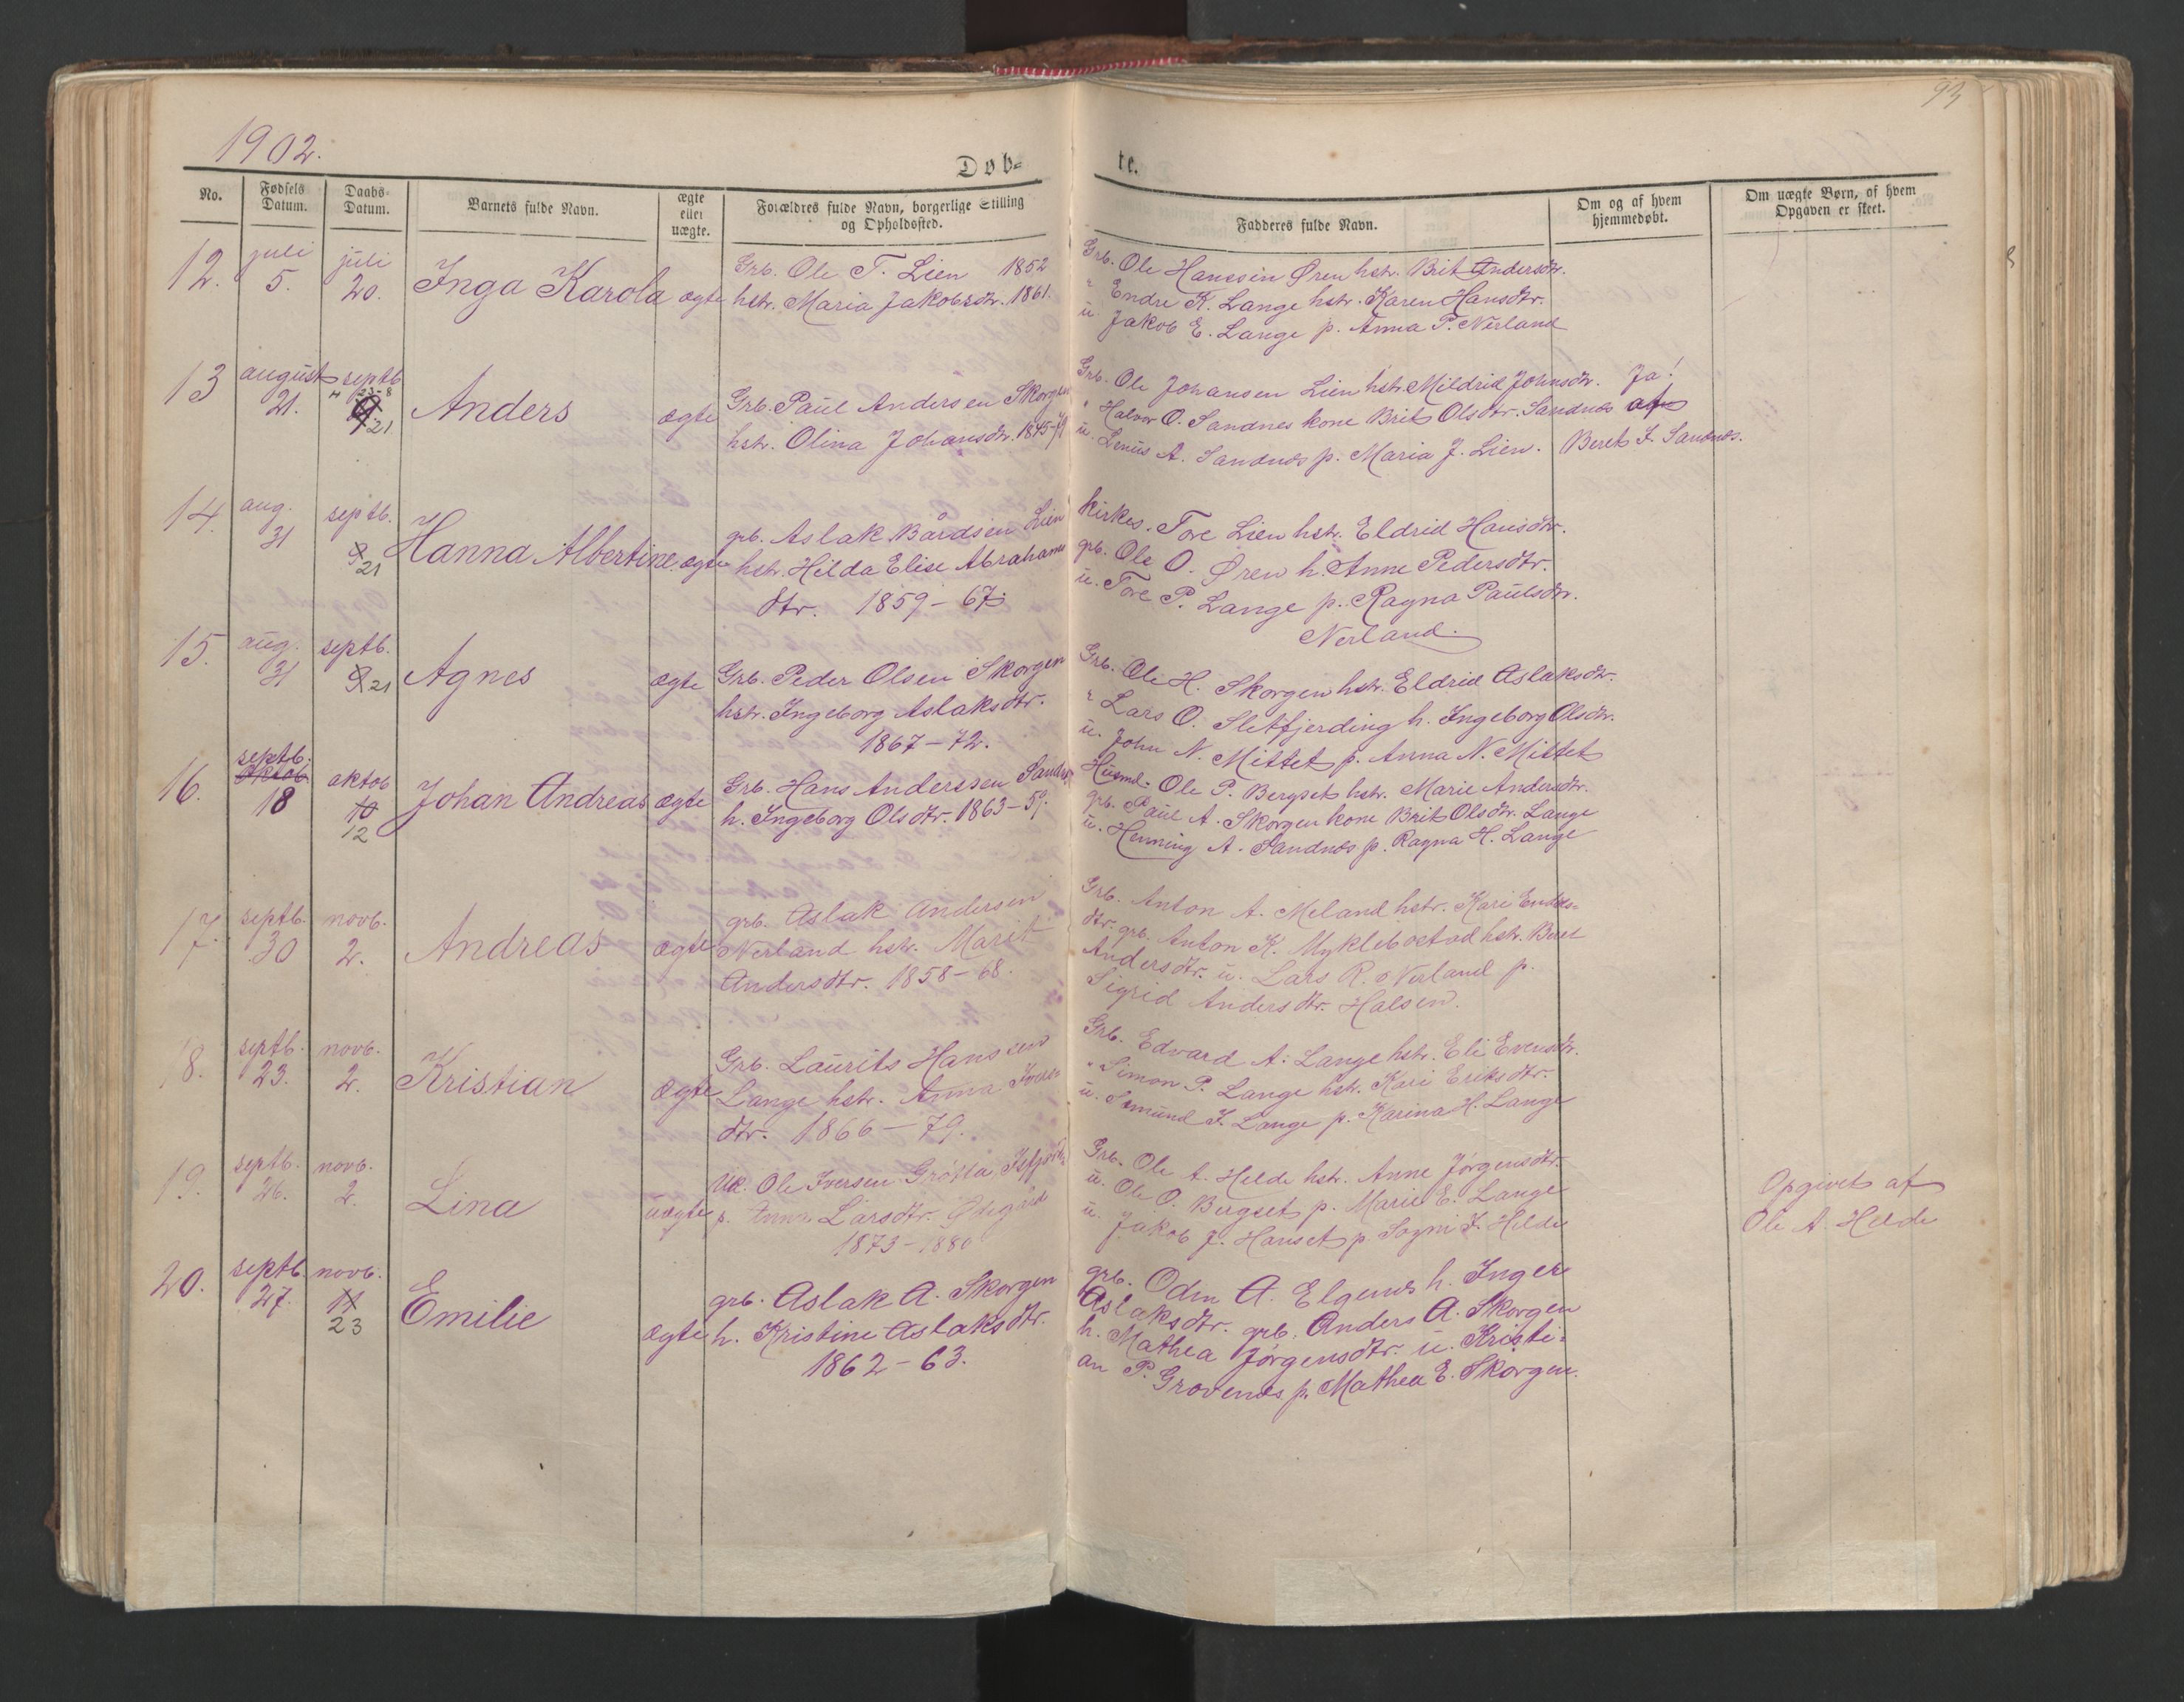 93
1902.
Døb-
te.
No.
Fødsels Datum.
Daabs Datum.
Barnets fulde Navn.
ægte eller uægte.
Forældres fulde Navn, borgerlige Stilling og Opholdssted.
Fadderes fulde Navn.
Om og af hvem hjemmedøbt.
Om uægte Børn, af hvem Opgaven er skeet.
12. juli 5. juli 20. Inga Karola ægte
Grb. Ole T. Lien 1852
hstr. Maria Jakobsdtr. 1861.
Grb. Ole Hanssen Øren hstr. Brit Andersdtr.
" Endre K. Lange hstr. Karen Hansdtr.
u. Jakob E. Lange p. Anna P. Nerland
13 august 21. septb. 21 Anders ægte
Grb. Paul Andersen Skorgen
hstr. Olina Johansdtr. 1845-
Grb. Ole Johansen Lien hstr. Mildrid Johnsdtr.
" Halvor O. Sandnes kone Brit Olsdtr. Sandnes
u. Lenus A. Sandnes p. Maria J. Lien.
Ja!
af
Beret I. Sandnes.
14. aug. 31 septb. 9 21 Hanna Albertine ægte
grb. Aslak Bårdsen Lien
hstr. Hilda Elise Abrahams
dtr. 1859-67
kirkes. Tore Lien hstr. Eldrid Hansdtr.
grb. Ole O. Øren h. Anne Pedersdtr.
u. Tore P. Lange p. Ragna Paulsdtr.
Nerland.
15. aug. 31 septb. 9 21 Agnes ægte
Grb. Peder Olsen Skorgen
hstr. Ingeborg Aslaksdtr.
1867-72.
Grb. Ole H. Skorgen hstr. Eldrid Aslaksdtr.
" Lars O. Sletfjerding h. Ingeborg Olsdtr.
u. John N. Mittet p. Anna N. Mittet
16. septb. oktob 18 aktob 10 12 Johan Andreas ægte
Grb. Hans Anderssen Sandnes
h. Ingeborg Olsdtr. 1863-59.
Husmd. Ole P. Bergset hstr. Marie Andersdtr.
grb. Paul A. Skorgen kone Brit Olsdtr. Lange
u. Henning A. Sandnes p. Ragna H. Lange
17. septb. 30 novb. 2. Andreas ægte
grb. Aslak Andersen
Nerland hstr. Marit
Andersdtr. 1858-68.
Grb. Anton A. Meland hstr. Kari Endres-
dtr. grb. Anton K. Myklebostad hstr. Beret
Andersdtr. u. Lars R. Nerland p.
Sigrid Andersdtr. Halsen.
18. septb. 23. novb. 2. Kristian ægte
Grb. Laurits Hanssen
Lange hstr. Anna Ivers
dtr. 1866-79.
Grb. Edvard A. Lange hstr. Eli Evensdtr.
" Simon P. Lange hstr. Kari Eriksdtr.
u. Amund I. Lange p. Karina H. Lange
19. septb. 26. novb. 2. Lina uægte
Uk. Ole Iversen Grøtta Isfjorden
p. Anna Larsdtr. Ødegård
1873-1880
Grb. Ole A. Helde hstr. Anne Jørgensdtr.
u. Ole O. Bergset p. Marie E. Lange
u. Jakob J. Hanset p. Sogni I. Helde
Opgivet af
Ole A. Helde
20. septb. 27. novb. 23 Emilie ægte
grb. Aslak A. Skorgen
h. Kristine Aslaksdtr.
1862-63.
grb. Odin A. Elgenes h. Inger
Aslaksdtr. grb. Anders A. Skorgen
h. Mathea Jørgensdtr. u. Kristi-
an P. Grovenes p. Mathea E. Skorgen.